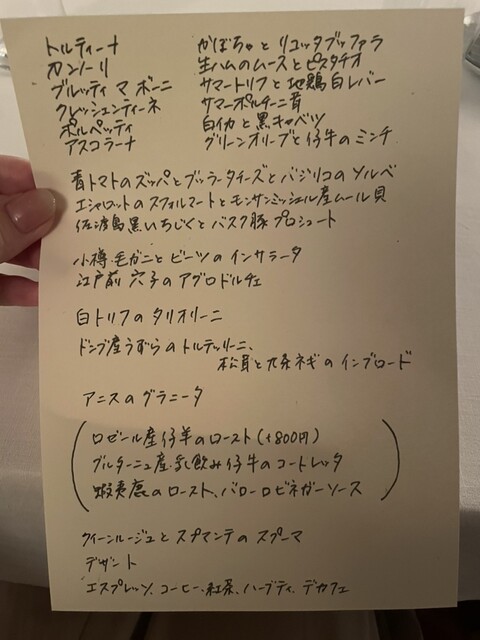 トルティーナ かぼちゃとリコッタブッファラ
カンノーリ 生ハムのムースとピスタチオ
ブルッティ マ ボーニ サマートリフと地鶏白レバー
クレッシェンティーネ サマーポルチーニ茸
ポルペッティ 白イカと黒キャベツ
アスコラーナ グリーンオリーブと仔牛のミンチ
青トマトのズッパとブッラータチーズとバジリコのソルベ
エシャロットのスフォルマートとモンサンミッシェル産ムール貝
佐渡島黒いちじくとバスク豚プロシュート
小樽・毛ガニとビーツのインサラータ
江戸前 穴子のアグロドルチェ
白トリフのタリオリーニ
ドンブ産うずらのトルテッリーニ、
松茸と九条ネギのインブロード
アニスのグラニータ
ロゼール産仔羊のロースト(+800円)
ブルターニュ産・乳飲み仔牛のコートレッタ
蝦夷鹿のロースト、バローロビネガーソース
クイーンルージュとスプマンテのスプーマ
デザート
エスプレッソ、コーヒー、紅茶、ハーブティ、デカフェ